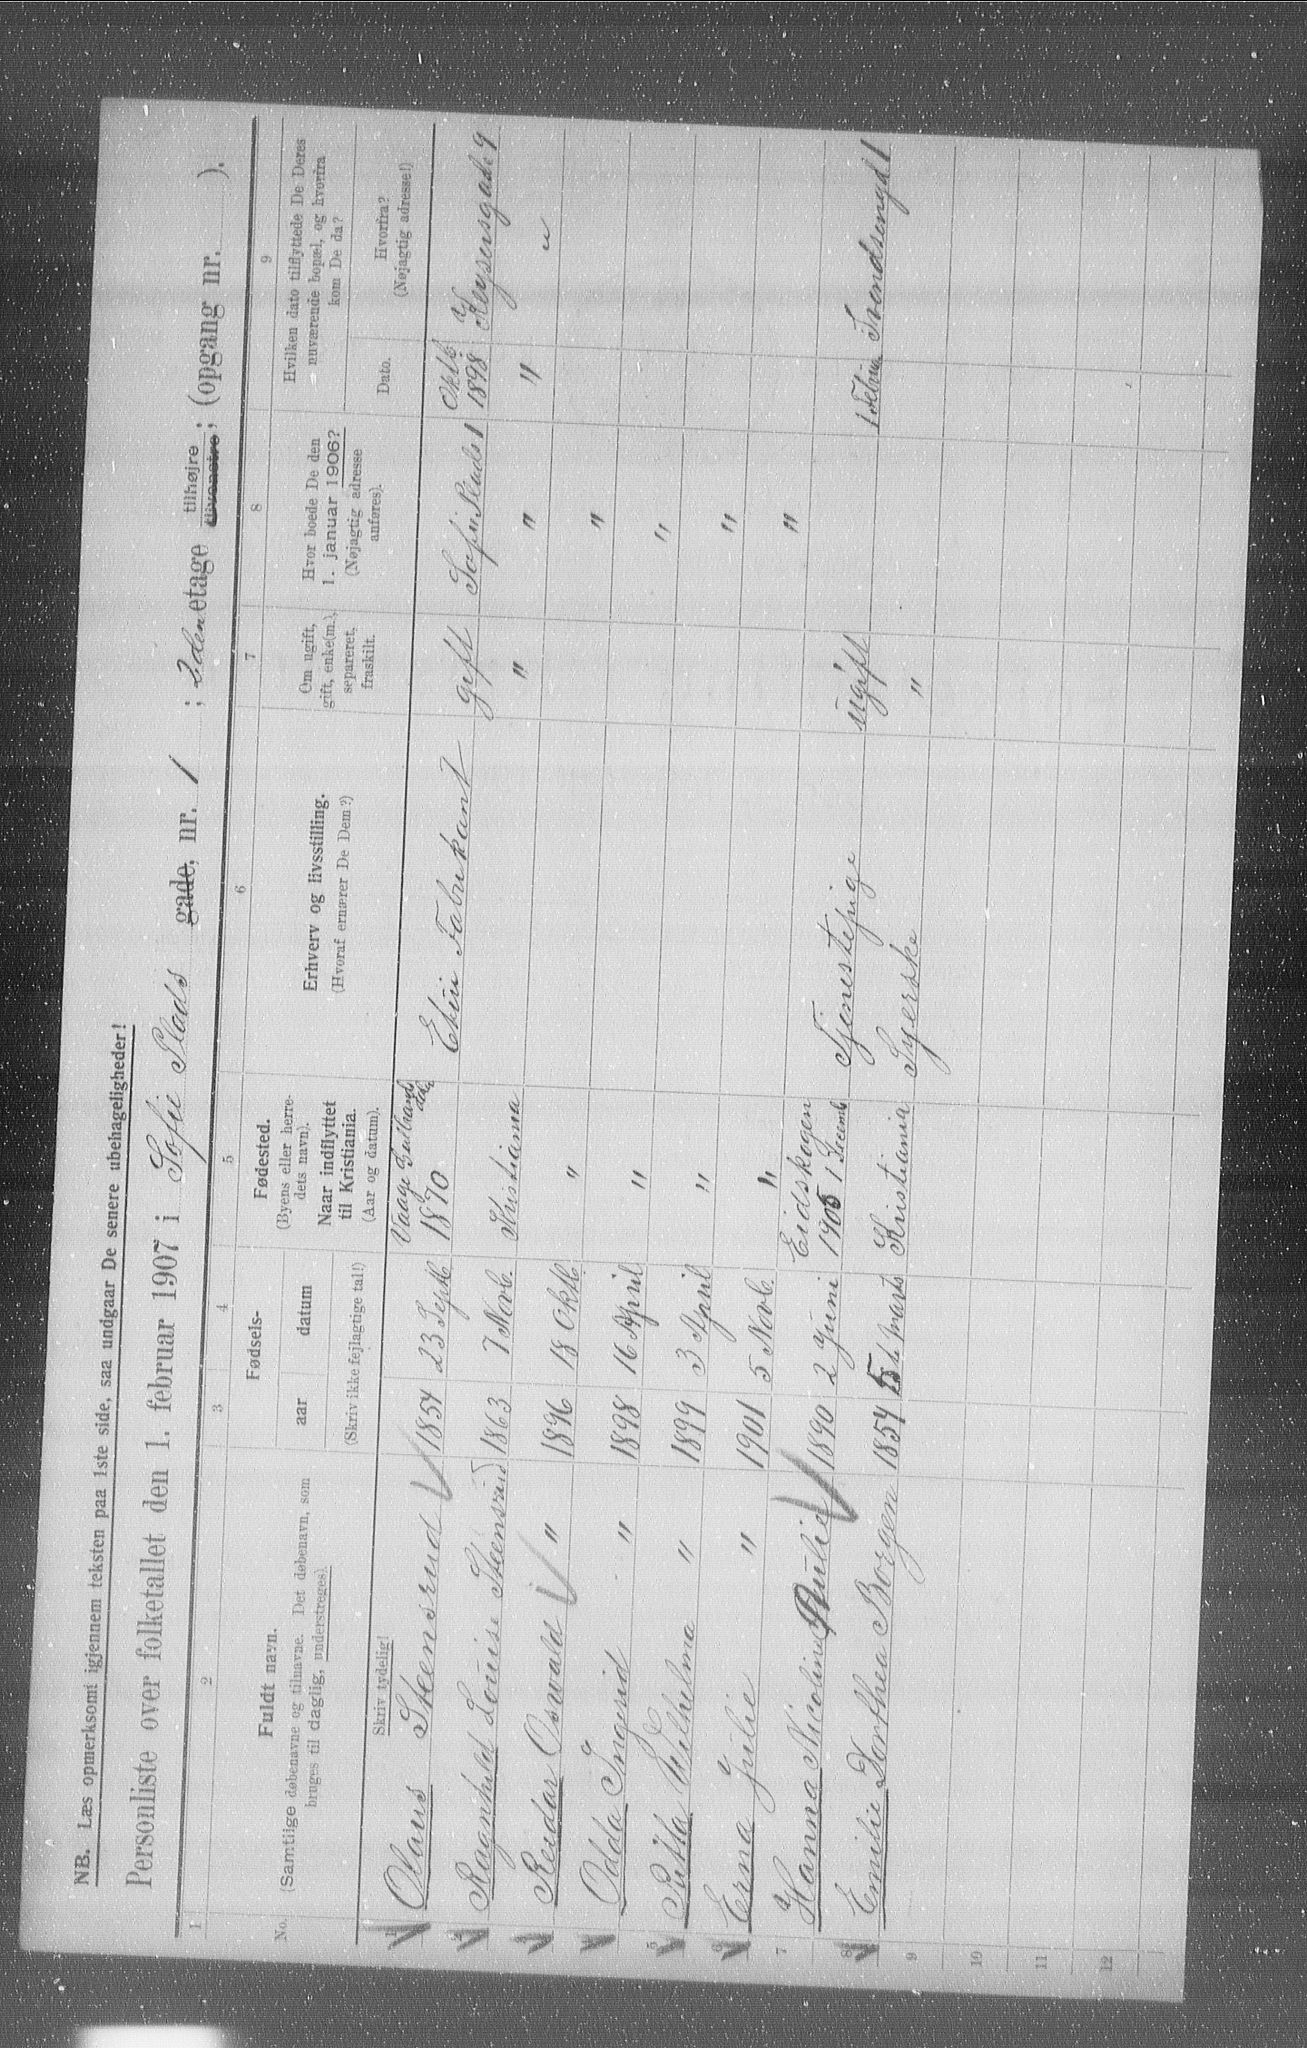 NB. Læs opmerksomt igjennem teksten paa 1ste side, saa undgaar De senere ubehageligheder!
Personliste over folketallet den 1. februar 1907 i Sofie Plads gade, nr. 1 ; 2den etage tilhøjre tilvenstre ; (opgang nr. ).
1 2 3 4 5 6 7 8 9
No. Fuldt navn. (Samtlige døbenavne og tilnavne. Det døbenavn, som bruges til daglig, understreges).
Skriv tydelig!
Fødsels- aar datum (Skriv ikke fejlagtige tal!)
Fødested. (Byens eller herredets navn). Naar indflyttet til Kristiania. (Aar og datum).
Erhverv og livsstilling. (Hvoraf ernærer De Dem?)
Om ugift, gift, enke(m.), separeret, fraskilt.
Hvor boede De den 1. januar 1906? (Nøjagtig adresse anføres).
Hvilken dato tilflyttede De Deres nuværende bopæl, og hvorfra kom De da?
Dato. Hvorfra? (Nøjagtig adresse!)
1 Olaus Steensrud 1854 23 Septb Vaage Gulbrandsdalen 1870 Etui Fabrikant gift Sofie Plads 1 Oktb 1898 Keysersgade 9
2 Ragnhild Louise Steensrud 1863 7 Novb. Kristiania " " " "
3 Reidar Oswald " 1896 18 Oktb. " "
4 Odda Ingrid " 1898 16 April " "
5 Wilhelma " 1899 3 April " "
6 Erna Julie " 1901 5 Novb. " "
7 Hanna Nicoline 1890 2 Juni Eidskogen 1905 1 Decemb Tjenestepige ugift 1 Svendsengd 1
8 Emilie Dorthea Borgen 1854 5 marts Kristiania Syerske "
9
10
11
12